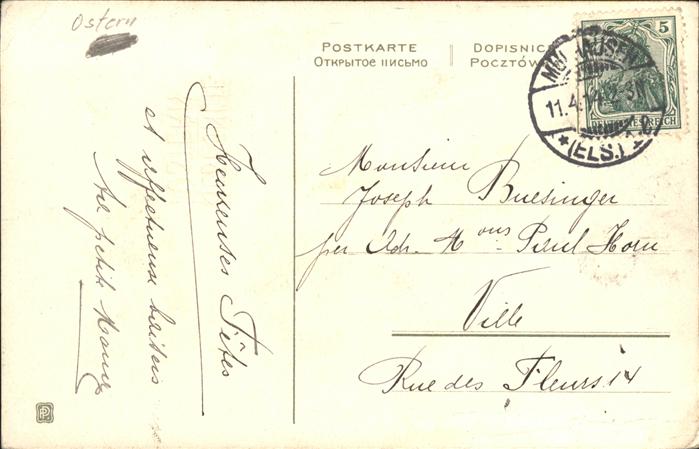 Ostern
POSTKARTE
Открытое письмо
DOPISNICA
POCZTÓW
5
MÜLHAUSEN
11.4.14
(ELS.)
DEUTSCHES REICH
Monsieur
Joseph Buesinger
per Adr. Mons Paul Horn
Ville
Rue des Fleurs 14
Heureuses Fêtes
et affectueux baisers
petit
PP